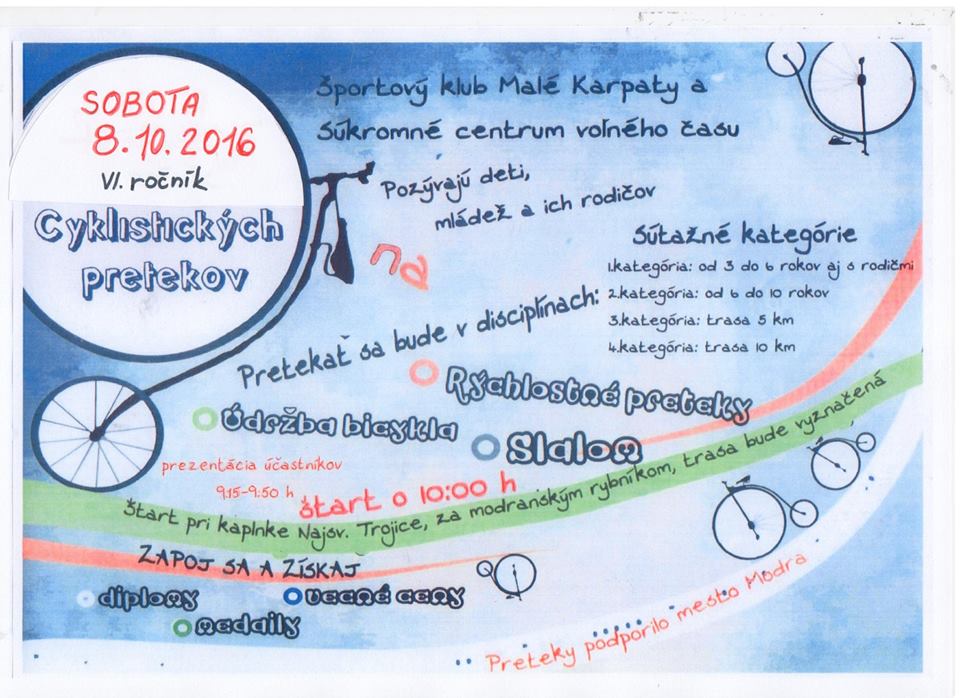 SOBOTA
8.10.2016
VI. ročník
Cyklistických
pretekov
Športový klub Malé Karpaty a
Súkromné centrum voľného času
Pozývajú deti,
mládež a ich rodičov
na
Súťažné kategórie
1.kategória: od 3 do 6 rokov aj s rodičmi
2.kategória: od 6 do 10 rokov
3.kategória: trasa 5 km
4.kategória: trasa 10 km
Pretekať sa bude v disciplínach:
Rýchlostné preteky
Údržba bicykla
Slalom
prezentácia účastníkov
9.15-9.50 h
štart o 10:00 h
štart pri kaplnke Najsv. Trojice, za modranským rybníkom, trasa bude vyznačená
ZAPOJ SA A ZÍSKAJ
diplomy
vecné ceny
medaily
Preteky podporilo mesto Modra